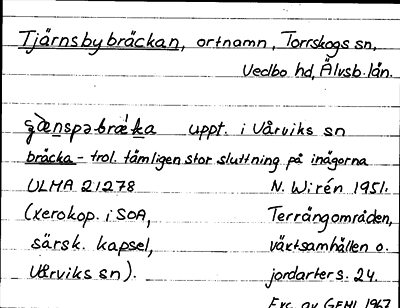 Tjärnsbybräckan, ortnamn, Torrskogs sn,
Vedbo hd, Älvsb. län.
uppt. i Vårviks sn
bräcka - trol. tämligen stor sluttning på inägorna
ULMA 21278 N. Wirén 1951.
(xerokop. i SOA, Terrängområden,
särsk. kapsel, växtsamhällen o.
Vårviks sn). jordarter s. 24.
Exc. av GEHL 1967